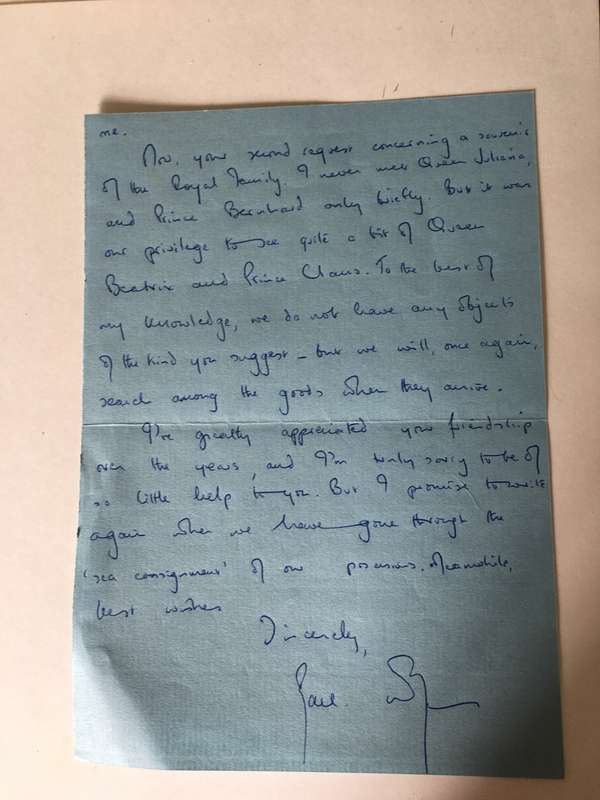 me.
Now, your second request concerning a souvenir
of the Royal Family. I never met Queen Juliana,
and Prince Bernhard only briefly. But it was
our privilege to see quite a bit of Queen
Beatrix and Prince Claus. To the best of
my knowledge, we do not have any objects
of the kind you suggest – but we will, once again,
search among the goods when they arrive.
I've greatly appreciated your friendship
over the years, and I'm truly sorry to be of
so little help to you. But I promise to write
again when we have gone through the
'sea consignment' of our possessions. Meanwhile,
best wishes
Sincerely,